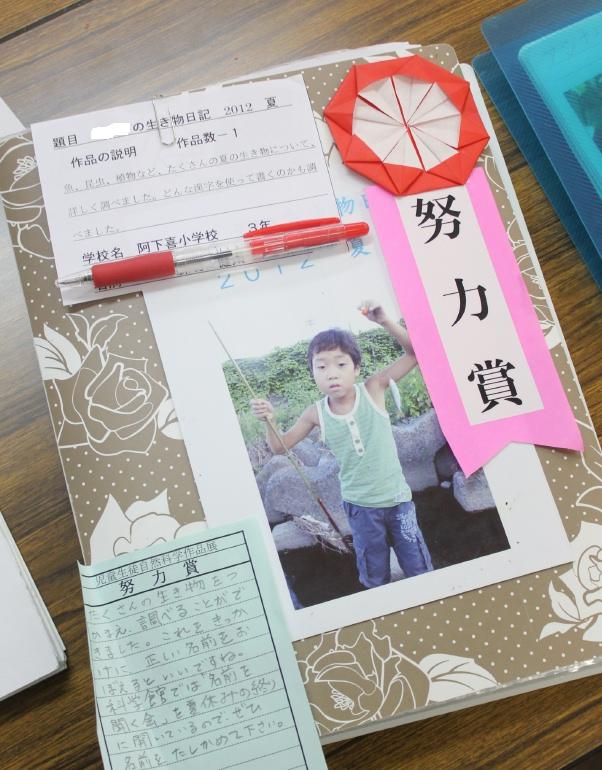 題目 の生き物日記 2012 夏
作品の説明 作品数－1
魚、昆虫、植物など、たくさんの夏の生き物について、
詳しく調べました。どんな漢字を使って書くのかも調
べました。
学校名 阿下喜小学校 3年
物日
2012 夏
努力賞
児童生徒自然科学作品展
努力賞
たくさんの生き物をつ
かまえ、調べることがで
きました。これをきっか
けに、正しい名前をお
ぼえるといいですね。
科学館では「名前を
聞く会」を夏休みの終り
に開いているので、ぜひ
名前をたしかめて下さい。